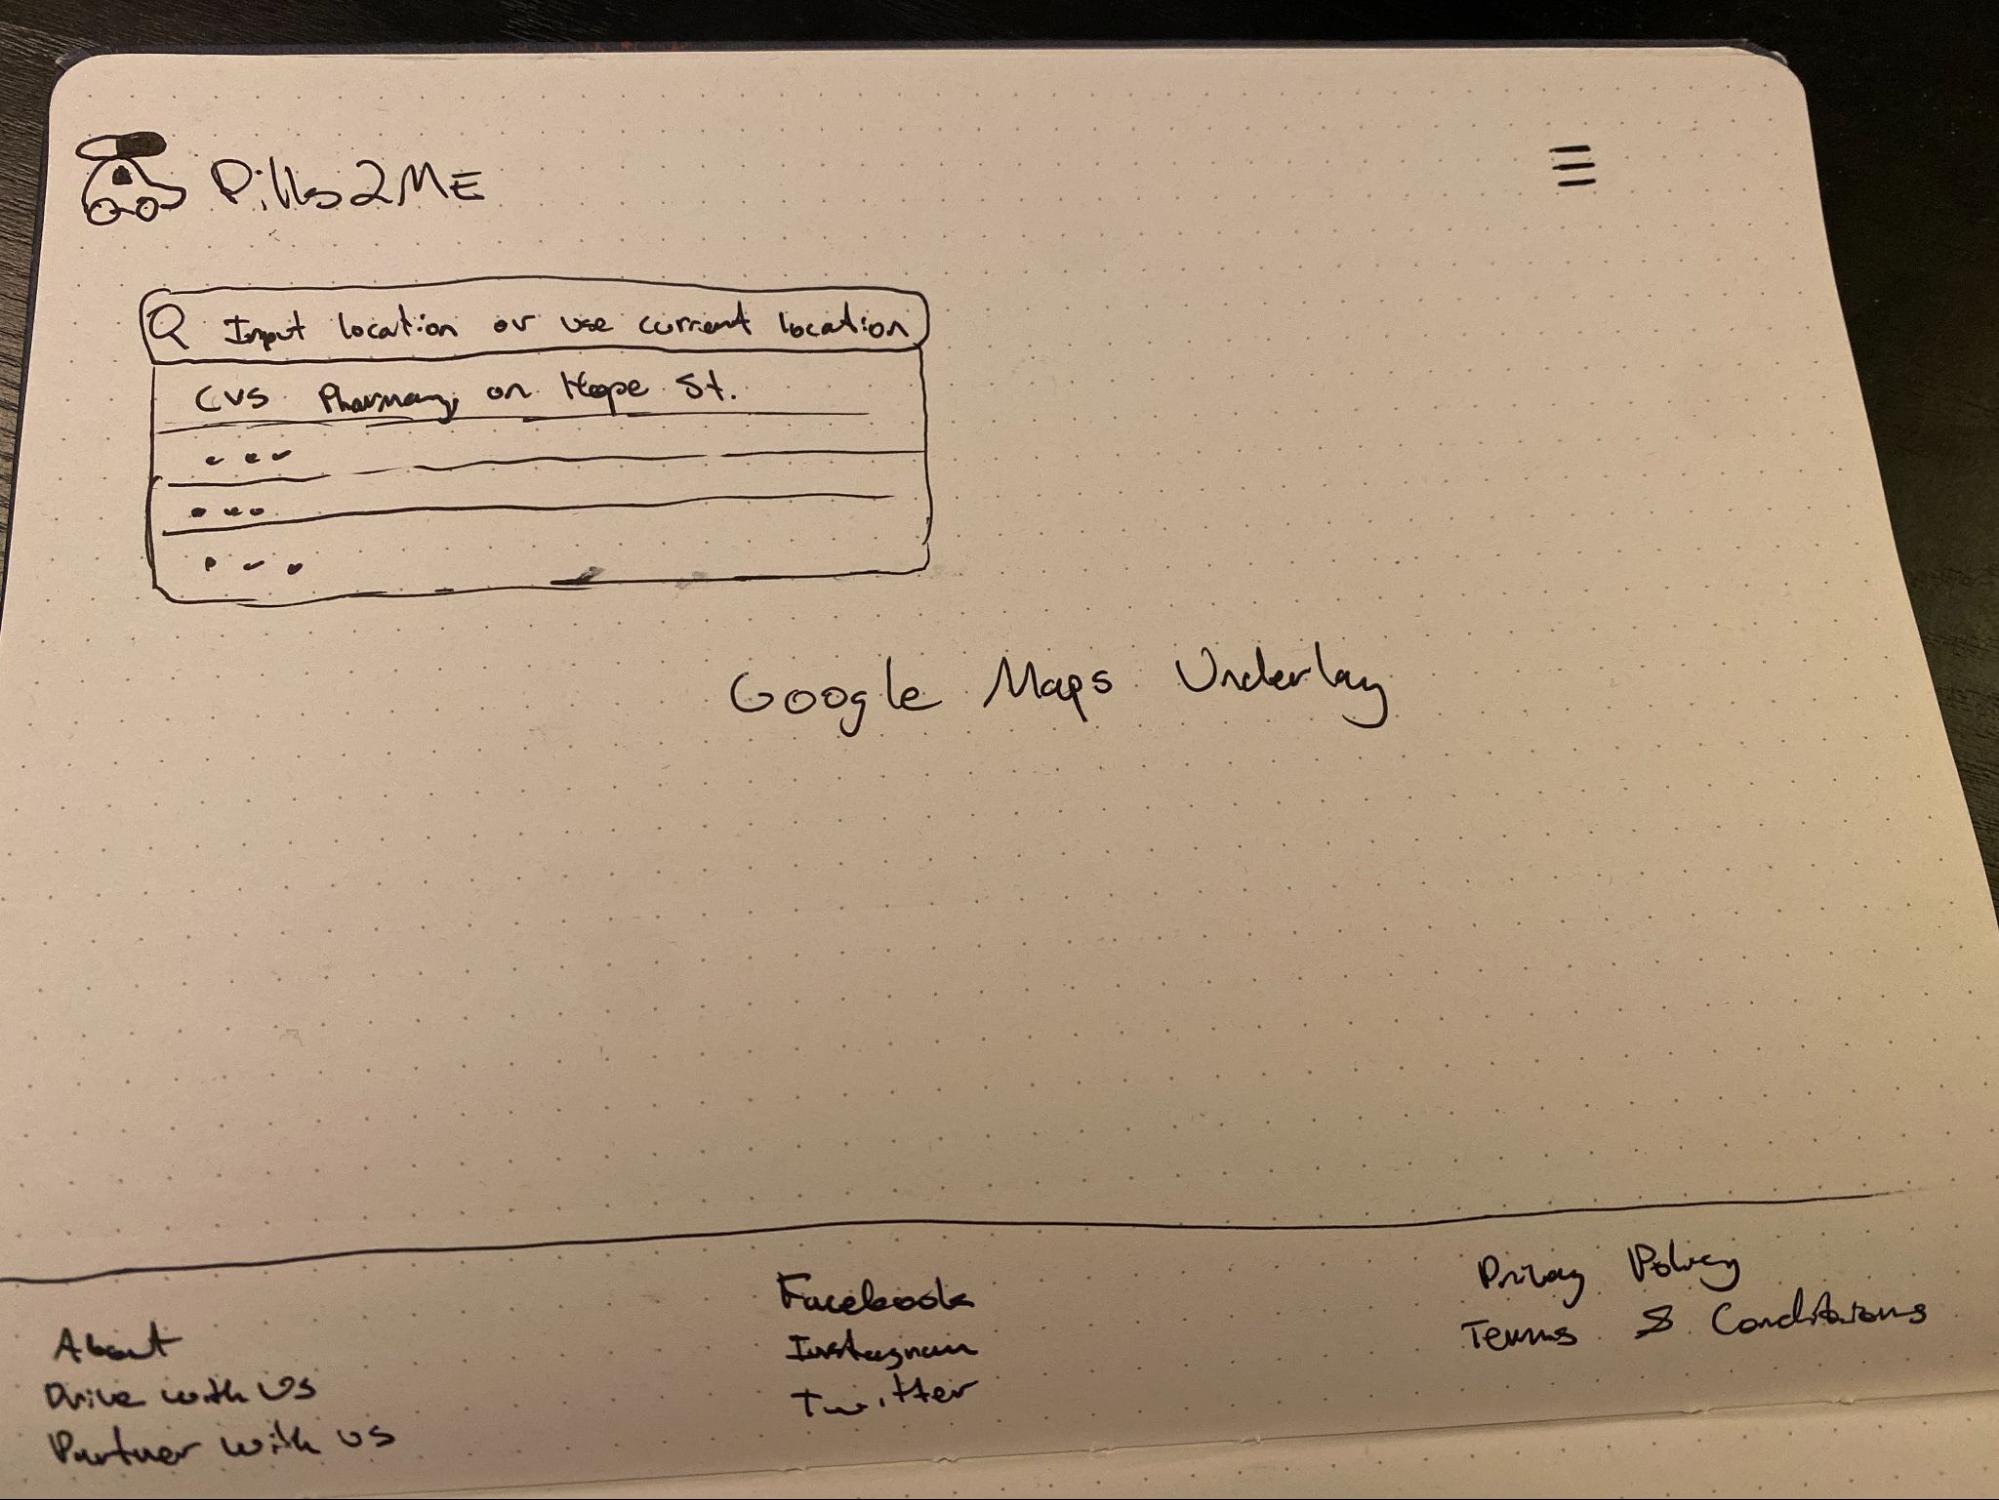 Pills2ME
Input location or use current location
CVS Pharmacy on Hope St.
...
...
...
Google Maps Underlay
About
Drive with us
Partner with us
Facebook
Instagram
Twitter
Privacy Policy
Terms & Conditions